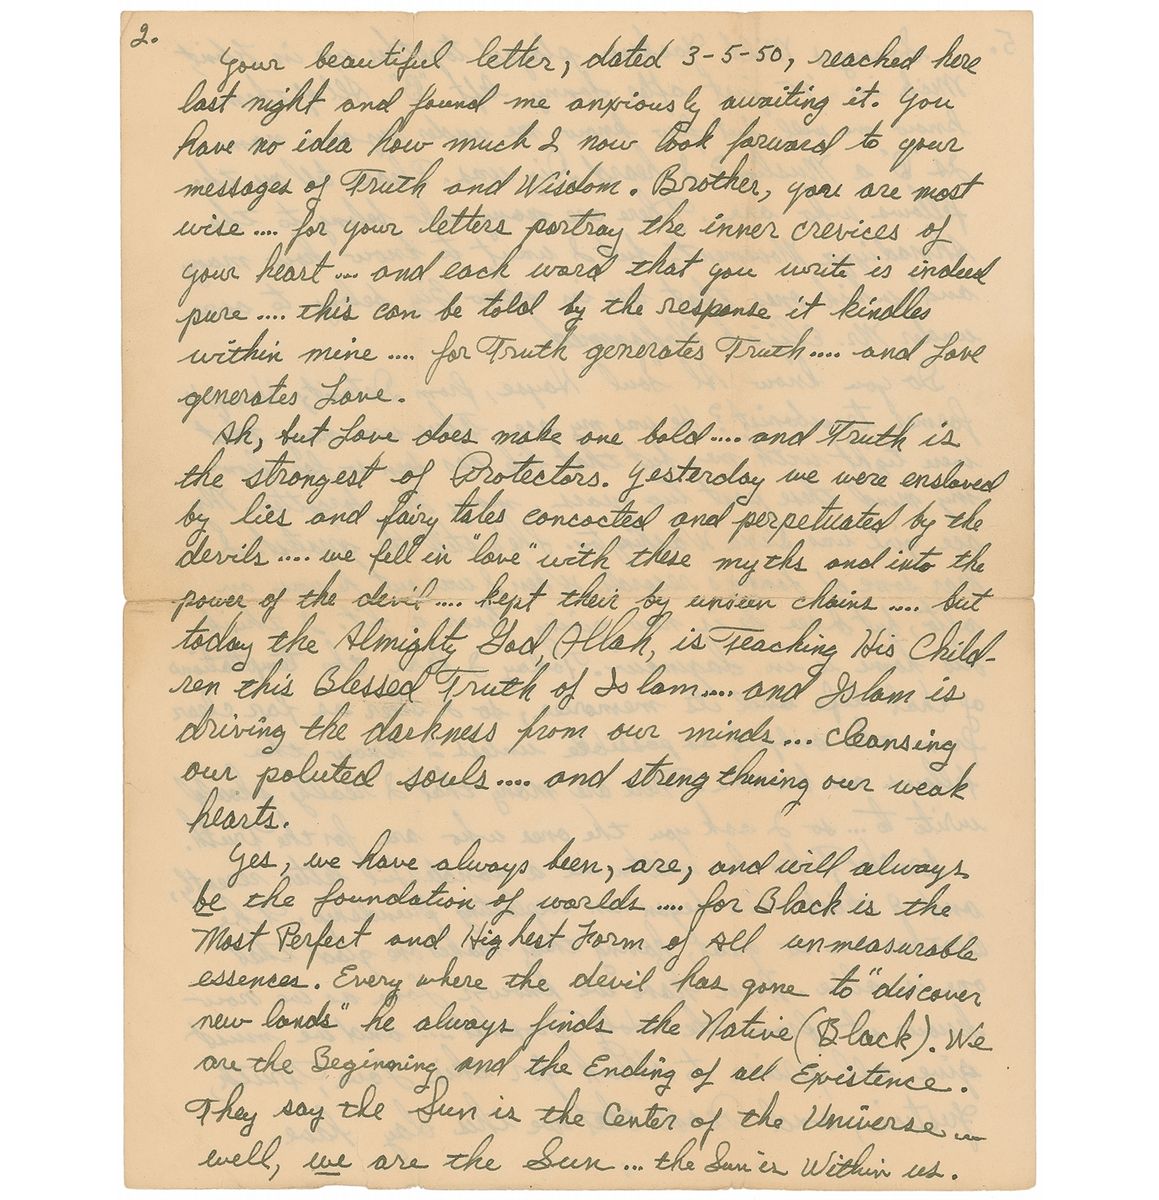 2.
Your beautiful letter, dated 3-5-50, reached here
last night and found me anxiously awaiting it. You
have no idea how much I now look forward to your
messages of Truth and Wisdom. Brother, you are most
wise .... for your letters portray the inner crevices of
your heart .... and each word that you write is indeed
pure .... this can be told by the response it kindles
within mine .... for Truth generates Truth .... and Love
generates Love.
Ah, but Love does make one bold .... and Truth is
the strongest of Protectors. Yesterday we were enslaved
by lies and fairy tales concocted and perpetuated by the
devils .... we fell in "love" with these myths and into the
power of the devil .... kept their by unseen chains .... but
today the Almighty God, Allah, is Teaching His Child-
ren this Blessed Truth of Islam .... and Islam is
driving the darkness from our minds ... cleansing
our poluted souls .... and strengthening our weak
hearts.
Yes, we have always been, are, and will always
be the foundation of worlds .... for Black is the
Most Perfect and Highest Form of All unmeasurable
essences. Every where the devil has gone to "discover
new lands" he always finds the Native (Black). We
are the Beginning and the Ending of all Existence.
They say the Sun is the Center of the Universe ...
well, we are the Sun ... the Sun is Within us.